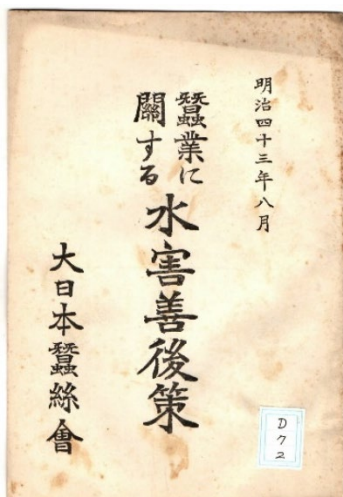 明治四十三年八月
蠶業に
關する
水害善後策
大日本蠶絲會
D72